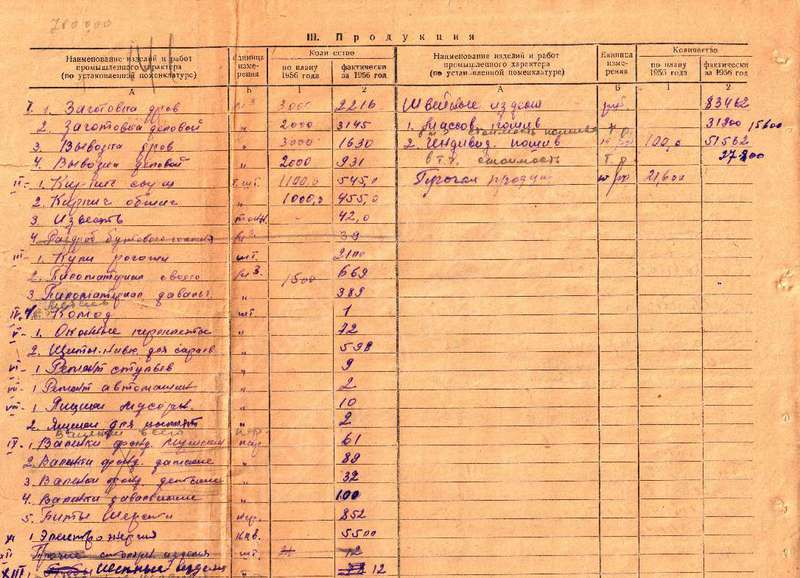 III. Продукция
Наименование изделий и работ промышленного характера (по установленной номенклатуре)
Единица измерения
Количество
по плану 1956 года
фактически за 1956 год
Наименование изделий и работ промышленного характера (по установленной номенклатуре)
Единица измерения
Количество
по плану 1956 года
фактически за 1956 год
А Б 1 2 А Б 1 2
I. 1. Заготовка дров м3 3000 2216
2. Заготовка деловой " 2000 3145
3. Вывозка дров " 3000 1630
4. Вывозка деловой " 2000 931
II - 1. Кирпич сырец т.шт. 1100,0 545,0
2. Кирпич обжиг " 1000,0 455,0
3. Известь тонн - 42,0
4. м3 39
III - 1. Кули рогожи шт. 2100
2. Пиломатериал своего м3. 1500 669
3. Пиломатериал даваль. " 389
IV. Комод шт. 1
V - 1. Оконные переплеты " 72
2. Щиты для сараев " 598
VI - 1 Ремонт стульев " 9
VII - 1 Ремонт автомашин " 2
VIII - 1 Ящики мусорн. " 10
2. Ящики для " 2
Валенки всего пар
IX - 1. Валенки фронд. мужские пар 61
2. Валенки фронд. дамские " 89
3. Валенки фронд. детские " 32
4. Валенки давальческие " 100
5. Битье шерсти кгр. 852
XI 1 Электроэнергия квв. 5500
XII Прочие столярн. изделия шт. 12
XIII. изделия 12
Швейные изделия руб. 83462
1. Массов. пошив 31900 15600
стоимость пошива
2. Индивид. пошив " 100,0 51562
в т.ч. стоимость т.р. 27800
Прочая продукц. 21600